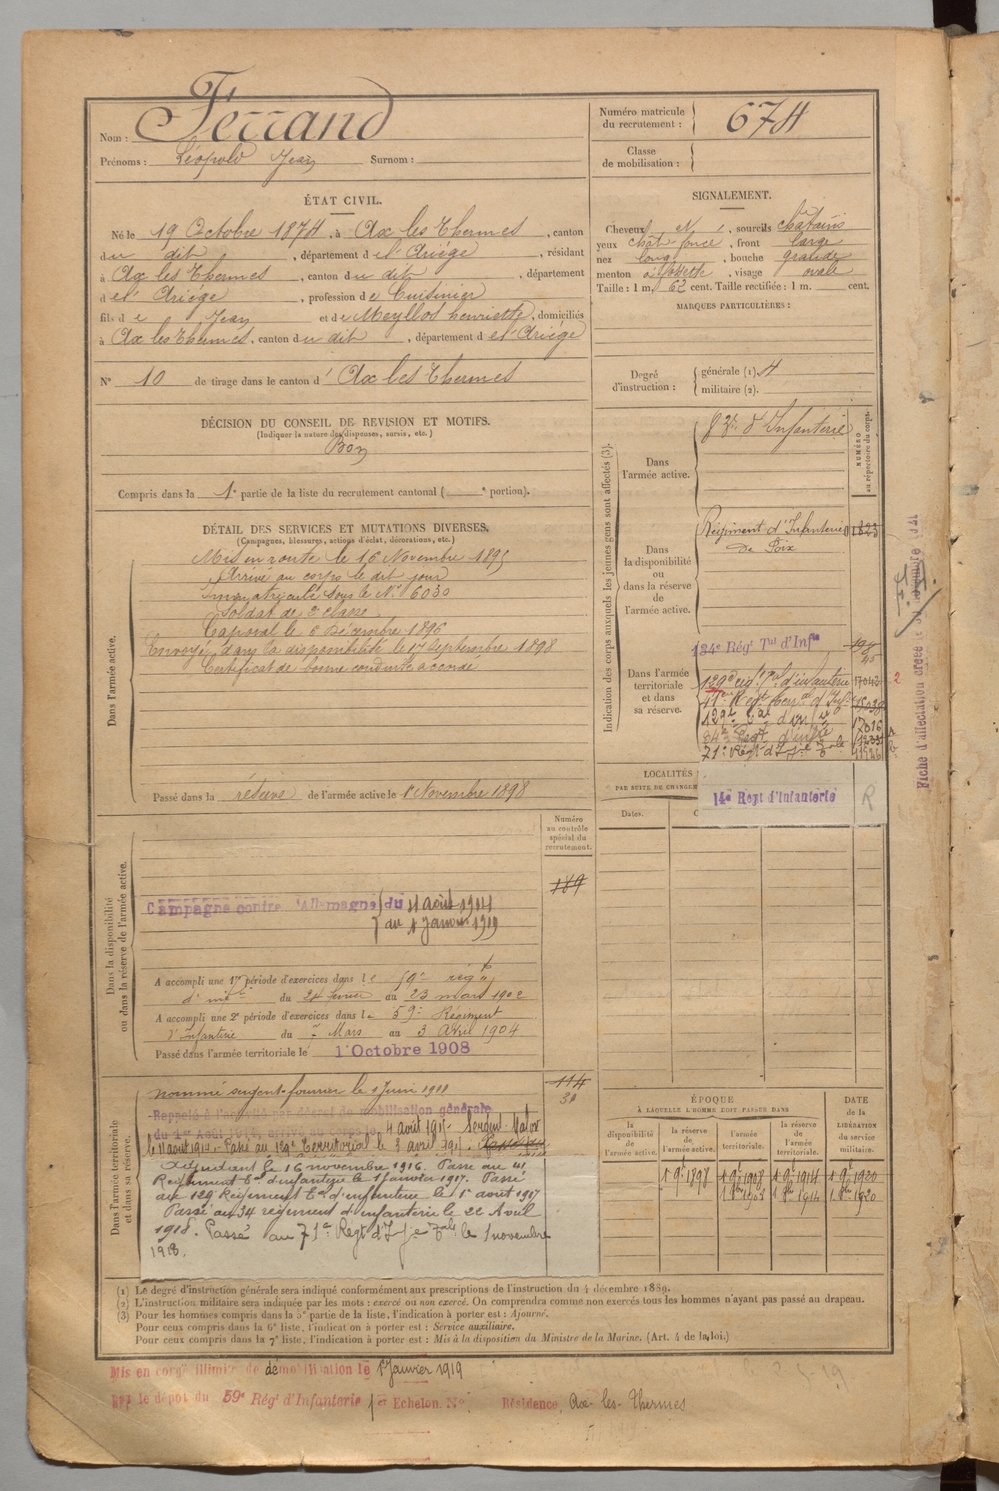 Nom : Ferrand
Prénoms : Léopold Jean Surnom :
Numéro matricule du recrutement : 674
Classe de mobilisation :
ÉTAT CIVIL.
Né le 19 Octobre 1874, à Ax les Thermes, canton
du dit, département de l'Ariège, résidant
à Ax les Thermes, canton du dit, département
de l'Ariège, profession de Cuisinier
fils de Jean et de Meyllos henriette, domiciliés
à Ax les Thermes, canton du dit, département de l'Ariège
N° 10 de tirage dans le canton d' Ax les Thermes
SIGNALEMENT.
Cheveux et, sourcils châtains
yeux chât foncé, front large
nez long, bouche grande
menton à fossette, visage ovale
Taille : 1 m. 62 cent. Taille rectifiée : 1 m. cent.
MARQUES PARTICULIÈRES :
Degré d'instruction : générale (1) 4
militaire (2).
DÉCISION DU CONSEIL DE REVISION ET MOTIFS.
(Indiquer la nature des dispenses, sursis, etc.)
Bon
Compris dans la 1e partie de la liste du recrutement cantonal ( e portion).
DÉTAIL DES SERVICES ET MUTATIONS DIVERSES.
(Campagnes, blessures, actions d'éclat, décorations, etc.)
Dans l'armée active.
Mis en route le 16 Novembre 1895
Arrivé au corps le dit jour
Immatriculé sous le N° 6030
Soldat de 2e classe
Caporal le 6 Décembre 1896
Envoyé dans la disponibilité le 17 Septembre 1898
Certificat de bonne conduite accordé
Passé dans la réserve de l'armée active le 1 Novembre 1898
Indication des corps auxquels les jeunes gens sont affectés (3).
NUMÉRO au répertoire du corps.
Dans l'armée active.
d'Infanterie
Dans la disponibilité ou dans la réserve de l'armée active.
Régiment d'Infanterie 1823
de Foix
Dans l'armée territoriale et dans sa réserve.
134e Régt Tal d'Infie
129e rég. tal d'infanterie
71e Régt d'Ie Tale
14e Regt d'Infanterie R
Fiche d'affectation créée
LOCALITÉS
PAR SUITE DE CHANGEM
Dates.
Numéro au contrôle spécial du recrutement.
189
Dans la disponibilité ou dans la réserve de l'armée active.
Campagne contre l'Allemagne du 4 Août 1914
au 1 Janvier 1919
A accompli une 1re période d'exercices dans le 59e régt
d'infie du 24 février au 23 mars 1902
A accompli une 2e période d'exercices dans le 59e Régiment
d'Infanterie du 7 Mars au 3 Avril 1904
Passé dans l'armée territoriale le 1 Octobre 1908
Dans l'armée territoriale et dans sa réserve.
nommé sergent-fourrier le 1 Juin 1911
114
30
Rappelé à l'activité par décret de mobilisation générale
du 1er Août 1914, arrivé au Corps le 4 août 1914. Sergent-Major
le 11 août 1914. Passé au 129e Territorial le 3 avril 1915.
Adjudant le 16 novembre 1916. Passé au 41
Régiment tal d'infanterie le 1 Janvier 1917. Passé
au 129 Régiment tal d'infanterie le 1er août 1917
Passé au 34 régiment d'infanterie le 22 Avril
1918. Passé au 71e Régt d'Ie Tale le 1 novembre
1918.
ÉPOQUE
À LAQUELLE L'HOMME DOIT PASSER DANS
la disponibilité de l'armée active.
la réserve de l'armée active.
l'armée territoriale.
la réserve de l'armée territoriale.
DATE de la LIBÉRATION du service militaire.
1 9e 1898 1 9e 1908 1 9e 1914 1 9e 1920
1 8bre 1907 1 8bre 1914 1 8bre 1920
(1) Le degré d'instruction générale sera indiqué conformément aux prescriptions de l'instruction du 4 décembre 1889.
(2) L'instruction militaire sera indiquée par les mots : exercé ou non exercé. On comprendra comme non exercés tous les hommes n'ayant pas passé au drapeau.
(3) Pour les hommes compris dans la 5e partie de la liste, l'indication à porter est : Ajourné.
Pour ceux compris dans la 6e liste, l'indication à porter est : Service auxiliaire.
Pour ceux compris dans la 7e liste, l'indication à porter est : Mis à la disposition du Ministre de la Marine. (Art. 4 de la loi.)
Mis en congé illimité de démobilisation le 1 Janvier 1919
le dépôt du 59e Régt d'Infanterie 1er Echelon. N° Résidence, Ax-les-Thermes